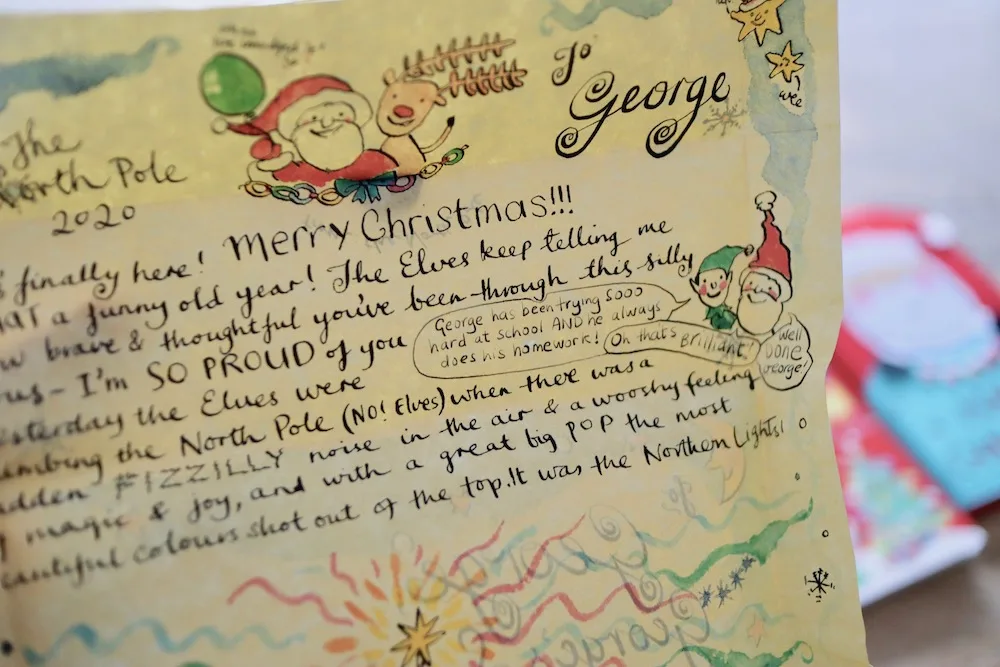 To
George
The
North Pole
2020
Merry Christmas!!!
finally here!
a funny old year! The Elves keep telling me
brave & thoughtful you've been through this silly
- I'm SO PROUD of you
George has been trying sooo
hard at school AND he always
does his homework!
Oh that's brilliant!
Well
Done
George!
the Elves were
the North Pole (NO! Elves) when there was a
FIZZILLY noise in the air & a wooshy feeling
magic & joy, and with a great big POP the most
colours shot out of the top. It was the Northern Lights!